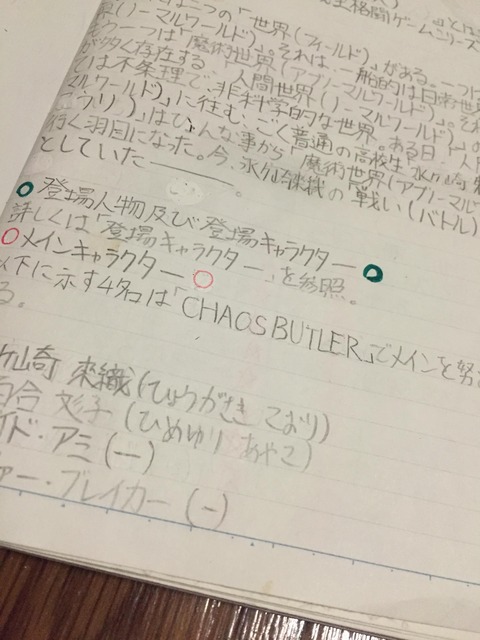 」とは
完全格闘ゲームシリーズ
は二つの「世界(フィールド)」がある。一つは
界(ノーマルワールド)」。それは、一般的は日常世界
もう一つは「魔術世界(アブノーマルワールド)」。それ
が多く存在する、人間世界(ノーマルワールド)」の
ては不条理で、非科学的な世界。ある日、「人間
マルワールド)」に住む、ごく普通の高校生
オリ)」はひょんな事から「魔術世界(アブノーマル
行く羽目になった。今、の戦い(バトル)
としていた―――。
○登場人物及び登場キャラクター○
詳しくは「登場キャラクター」を参照。
○メインキャラクター○
以下に示す4名は「CHAOS BUTLER」でメインを努
る。
山奇 來織(ひょうがさき こおり)
百合 彩子(ひめゆり あやこ)
イド・アミ(ー)
ァー・ブレイカー(-)